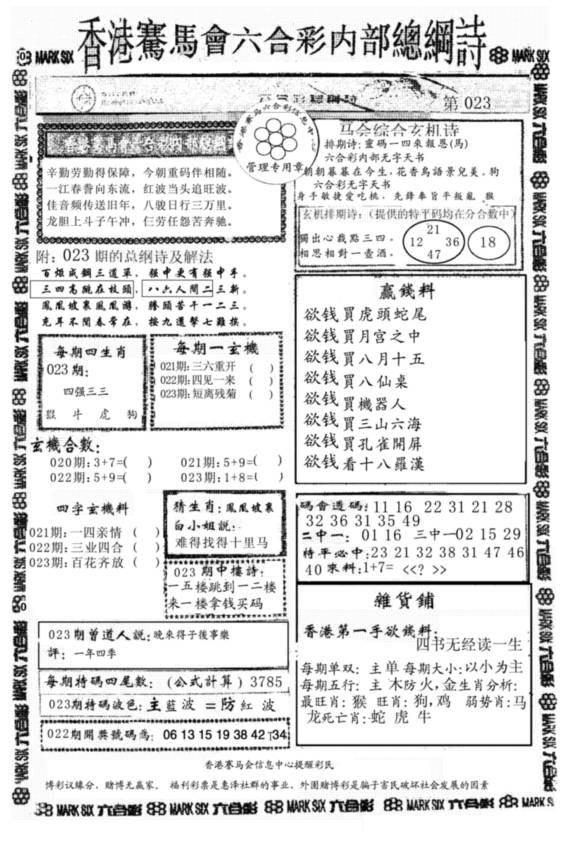 香港賽馬會六合彩内部總綱詩
第 023
香港赛马会六合彩信息中心
管理专用章
辛勤劳動得保障，今朝重码伴相随。
一江春晝向东流，红波当头追旺波。
佳音频传送旧年，八骏日行三万里。
龙胆上斗子午冲，仨劳任怨苦奔驰。
附：023 期的总纲诗及解法
百煅成鋼三道單，
三四高跳在枝頭，八六人間二三新。
鳳凰坡裏鳳凰游，勝頭苦干一二三。
每期四生肖
023期：
四强三三
猴 斗 虎 狗
每期一玄機
021期：三六重开 （ ）
022期：四见一来 （ ）
023期：短离残菊 （ ）
玄機合数：
020期：3+7=( ) 021期：5+9=( )
022期：5+9=( ) 023期：1+8=( )
四字玄機料
021期：一四亲情 （ ）
022期：三业四合 （ ）
023期：百花齐放 （ ）
猜生肖：鳳凰坡裏
白小姐説：
难得找得十里马
023 期中樓詩：
一五楼跳到一二楼
来一楼拿钱买码
023期曾道人説：晚來得子後事樂
評：一年四季
每期特碼四尾数：（公式計算）3785
023期特码波色：主藍波 二防紅波
022期開奬號碼為：06 13 15 19 38 42 T34
马会综合玄机诗
排期诗：重码一四來報恩(馬)
六合彩内部无字天书
朝朝暮暮在今生，花香鳥語景兒美。狗
六合彩无字天书
身手敏捷爱吃桃，先鋒奉旨平叛亂 猴
玄机排期诗：(提供的特平码均在分合数中)
獨出心裁點三四。
相思相對一壺酒。
21
12 36
47
18
赢錢料
欲钱買虎頭蛇尾
欲钱買月宫之中
欲钱買八月十五
欲钱買八仙桌
欲钱買機器人
欲钱買三山六海
欲钱買孔雀開屏
欲钱看十八羅漢
碼會道碼：11 16 22 31 21 28
32 36 31 35 49
二中一：01 16 三中一02 15 29
特平必中:23 21 32 38 31 47 46
40 來料:1+7= <<? >>
雜貨鋪
香港第一手欲錢料：
四书无经读一生
每期单双：主 单 每期大小：以小为主
每期五行：主 木防火，金生肖分析：
最旺肖：猴 旺肖：狗，鸡 弱势肖：马
龙死亡肖：蛇 虎 牛
香港赛马会信息中心提醒彩民
博彩议缘分，赌博无赢家，福利彩票是惠泽社群的事业，外圍赌博彩是骗子害民破坏社会发展的因素
MARK SIX 六合彩 MARK SIX 六合彩 MARK SIX 六合彩 MARK SIX 六合彩 MARK S